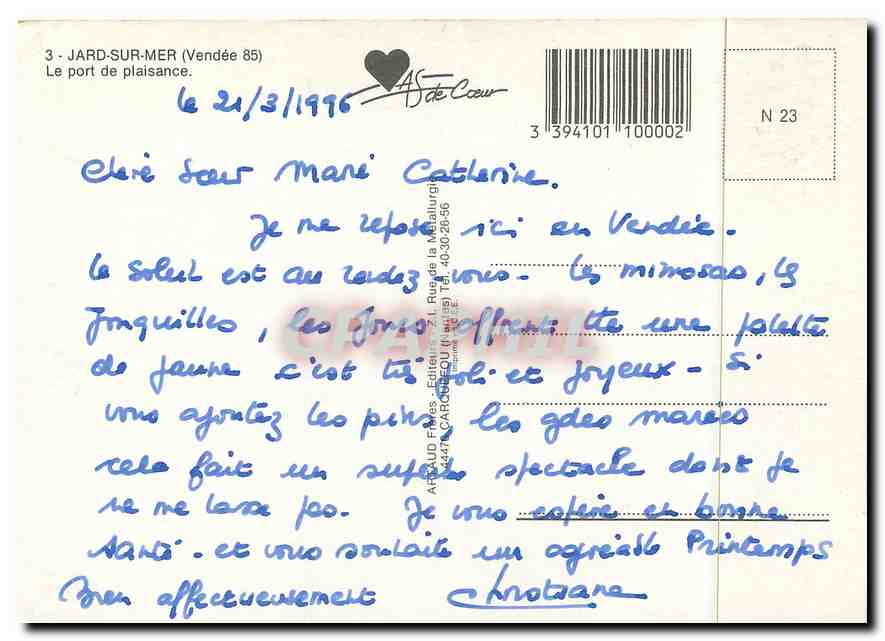 3 - JARD-SUR-MER (Vendée 85)
Le port de plaisance.
AS de Cœur
3 394101 100002
N 23
le 21/3/1996
Chère Sœur Marie Catherine.
Je me repose ici en Vendée.
le soleil est au rendez vous. les mimosas, les
jonquilles, les ajoncs offrent tte une palette
de jaune c'est très joli et joyeux. Si
vous ajoutez les pins, les gdes marées
cela fait un superbe spectacle dont je
ne me lasse pas. Je vous espère en bonne
santé. et vous souhaite un agréable Printemps
Bien affectueusement Christiane
ARTAUD Frères - Editeurs - Z.I. Rue de la Métallurgie
44470 CARQUEFOU (Nantes) Tél. 40-30-26-56
CPAPHIL